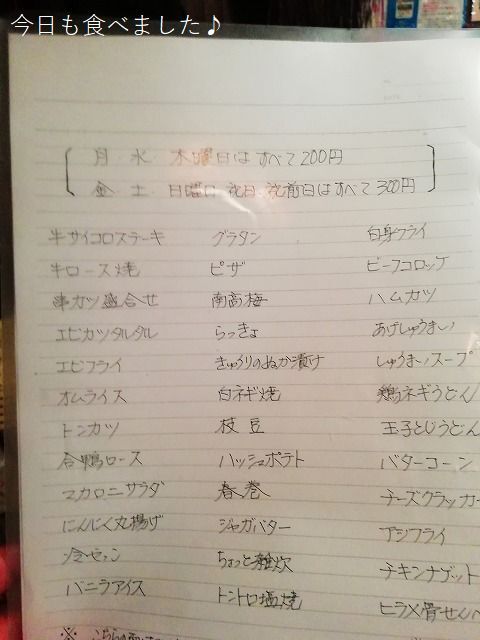 今日も食べました♪
月・水・木曜日はすべて200円
金・土・日曜日、祝日、祝前日はすべて300円
牛サイコロステーキ グラタン 白身フライ
牛ロース焼 ピザ ビーフコロッケ
串カツ盛合せ 南高梅 ハムカツ
エビカツタルタル らっきょ あげしゅうまい
エビフライ きゅうりのぬか漬け しゅうまいスープ
オムライス 白ネギ焼 鶏ネギうどん
トンカツ 枝豆 玉子とじうどん
合鴨ロース ハッシュポテト バターコーン
マカロニサラダ 春巻 チーズクラッカー
にんにく丸揚げ ジャガバター アジフライ
冷やっこ ちょっと雑炊 チキンナゲット
バニラアイス トントロ塩焼 ヒラメ骨せんべ
※こちらの